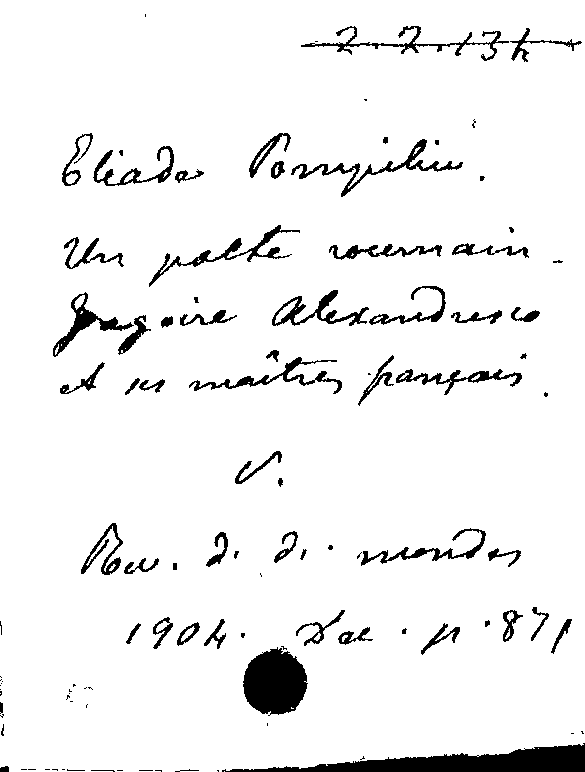 2.2.134
Eliade Pompiliu.
Un poète roumain -
Grégoire Alexandresco
et ses maîtres français.
V.
Rev. d. d. mondes
1904. Déc. p. 871